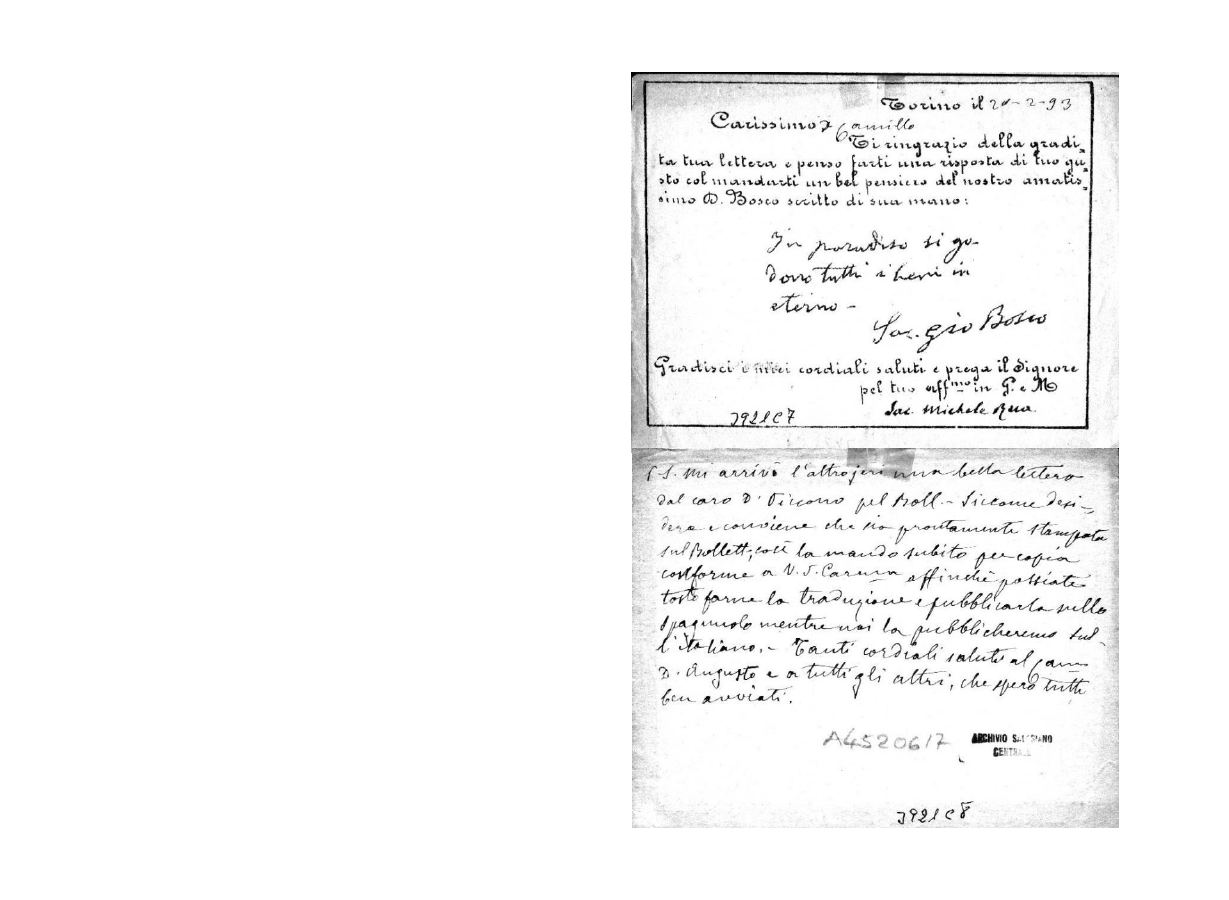 Torino il 20-2-93
Carissimo D. Camillo
Ti ringrazio della gradi-
ta tua lettera e penso farti una risposta di tuo gu-
sto col mandarti un bel pensiero del nostro amatis-
simo D. Bosco scritto di sua mano:
In paradiso si go-
dono tutti i beni in
eterno -
Sac. Gio Bosco
Gradisci i miei cordiali saluti e prega il Signore
pel tuo aff.mo in G. e M
Sac. Michele Rua.
3921C7
P.S. Mi arrivò l'altro jeri una bella lettera
dal caro D. pel Boll. - Siccome desi-
dera e conviene che sia prontamente stampata
sul Bollett, così la mando subito per copia
conforme a V. S. Car affinchè possiate
tosto farne la traduzione e pubblicarla sullo
spagnuolo mentre noi la pubblicheremo sul-
l'italiano. - Tanti cordiali saluti al
D. Augusto e a tutti gli altri, che spero tutti
ben avviati.
A4520617
ARCHIVIO SALESIANO
CENTRALE
3921C8